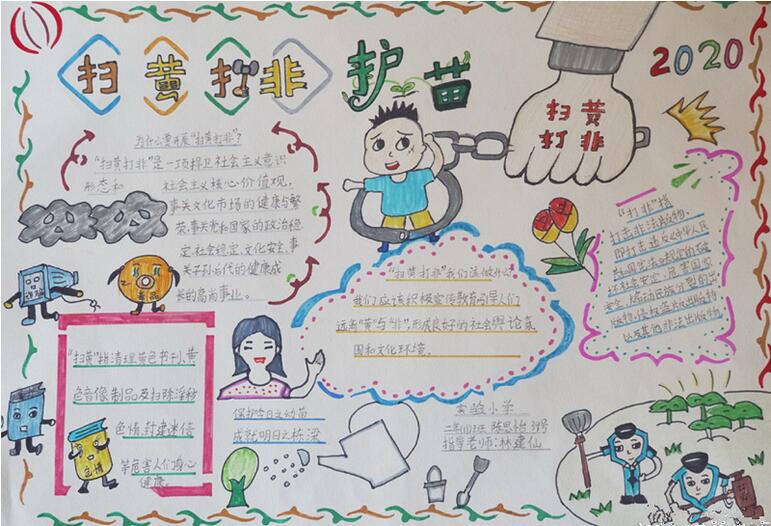 扫黄打非 护苗
2020
扫黄
打非
为什么要开展"扫黄打非"?
"扫黄打非"是一项捍卫社会主义意识
形态和 社会主义核心价值观,
事关文化市场的健康与繁
荣,事关党和国家的政治稳
定,社会稳定,文化安全,事
关子孙后代的健康成
长的高尚事业。
"扫黄打非"我们该做什么
我们应该积极宣传教育引导人们
远离"黄"与"非",形成良好的社会舆论氛
围和文化环境。
"打非"指
打击非法出版物,
即打击违反《中华人民
共和国宪法》规定的破
坏社会安定、危害国家
安全、煽动民族分裂的出
版物,侵权盗版出版物
以及其他非法出版物
"扫黄"指清理黄色书刊、黄
色音像制品及扫除淫秽
色情、封建迷信
等危害人们身心
健康。
色情
保护今日之幼苗
成就明日之栋梁
实验小学
指导老师:林建仙